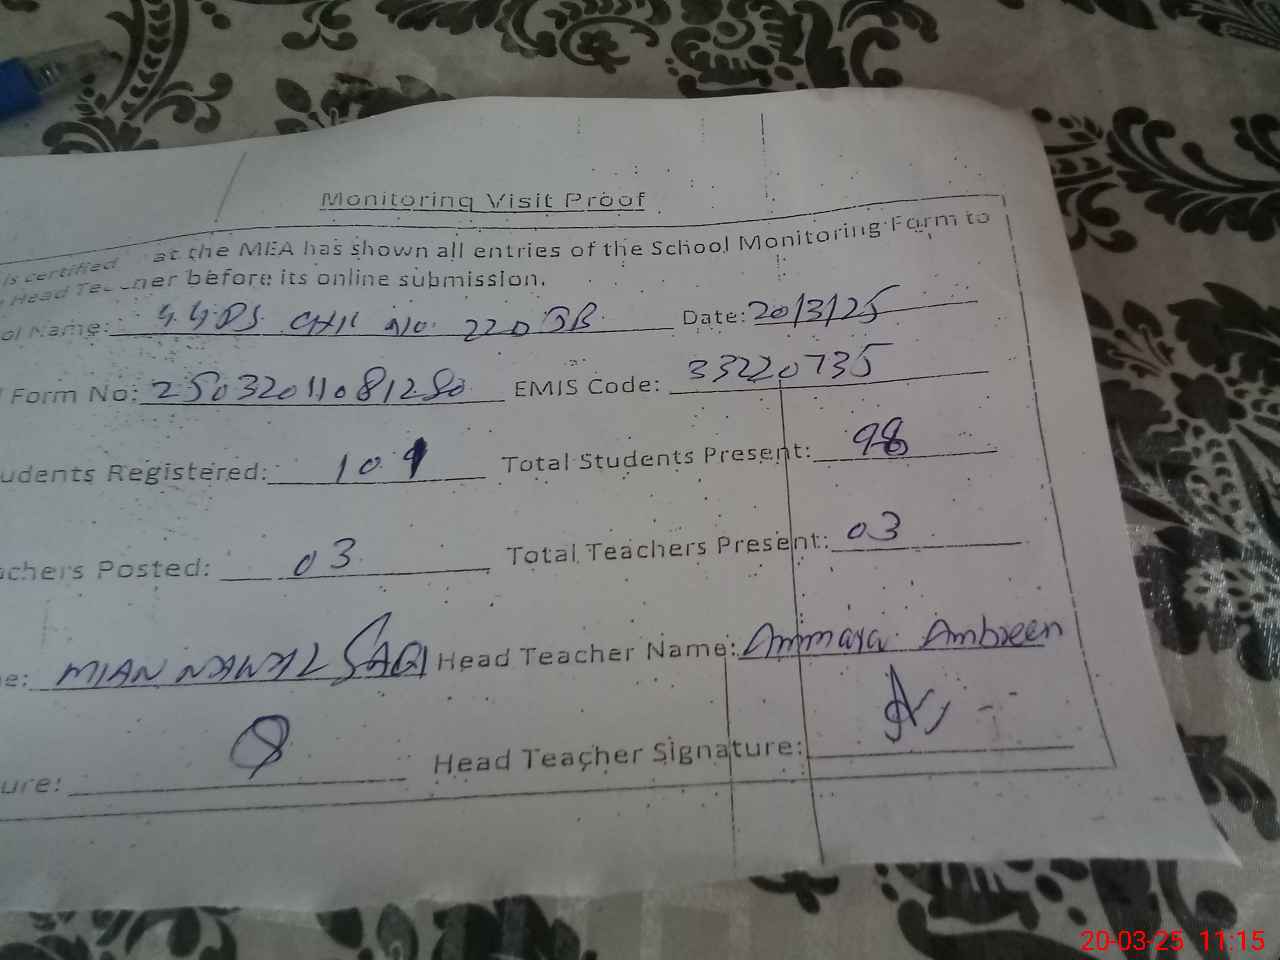 Monitoring Visit Proof
is certified at the MEA has shown all entries of the School Monitoring Form to
Head Teacher before its online submission.
ol Name: GGPS CHK No. 220 GB Date: 20/3/25
Form No: 25032011081280 EMIS Code: 33220735
udents Registered: 109 Total Students Present: 98
achers Posted: 03 Total Teachers Present: 03
e: MIAN NAWAL SAQI Head Teacher Name: Ammara Ambreen
ure: Head Teacher Signature:
20-03-25 11:15